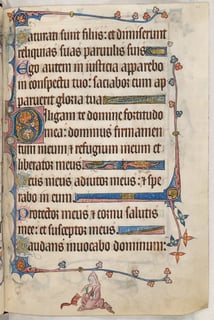 Saturati sunt filiis: et dimiserunt
reliquias suas parvulis suis
Ego autem in iusticia apparebo
in conspectu tuo: saciabor cum ap
paruerit gloria tua
Diligam te domine fortitudo
mea: dominus firmamen
tum meum et refugium meum et
liberator meus
Deus meus adiutor meus: et spe
rabo in eum
Protector meus et cornu salutis
mee: et susceptor meus
Laudans invocabo dominum: